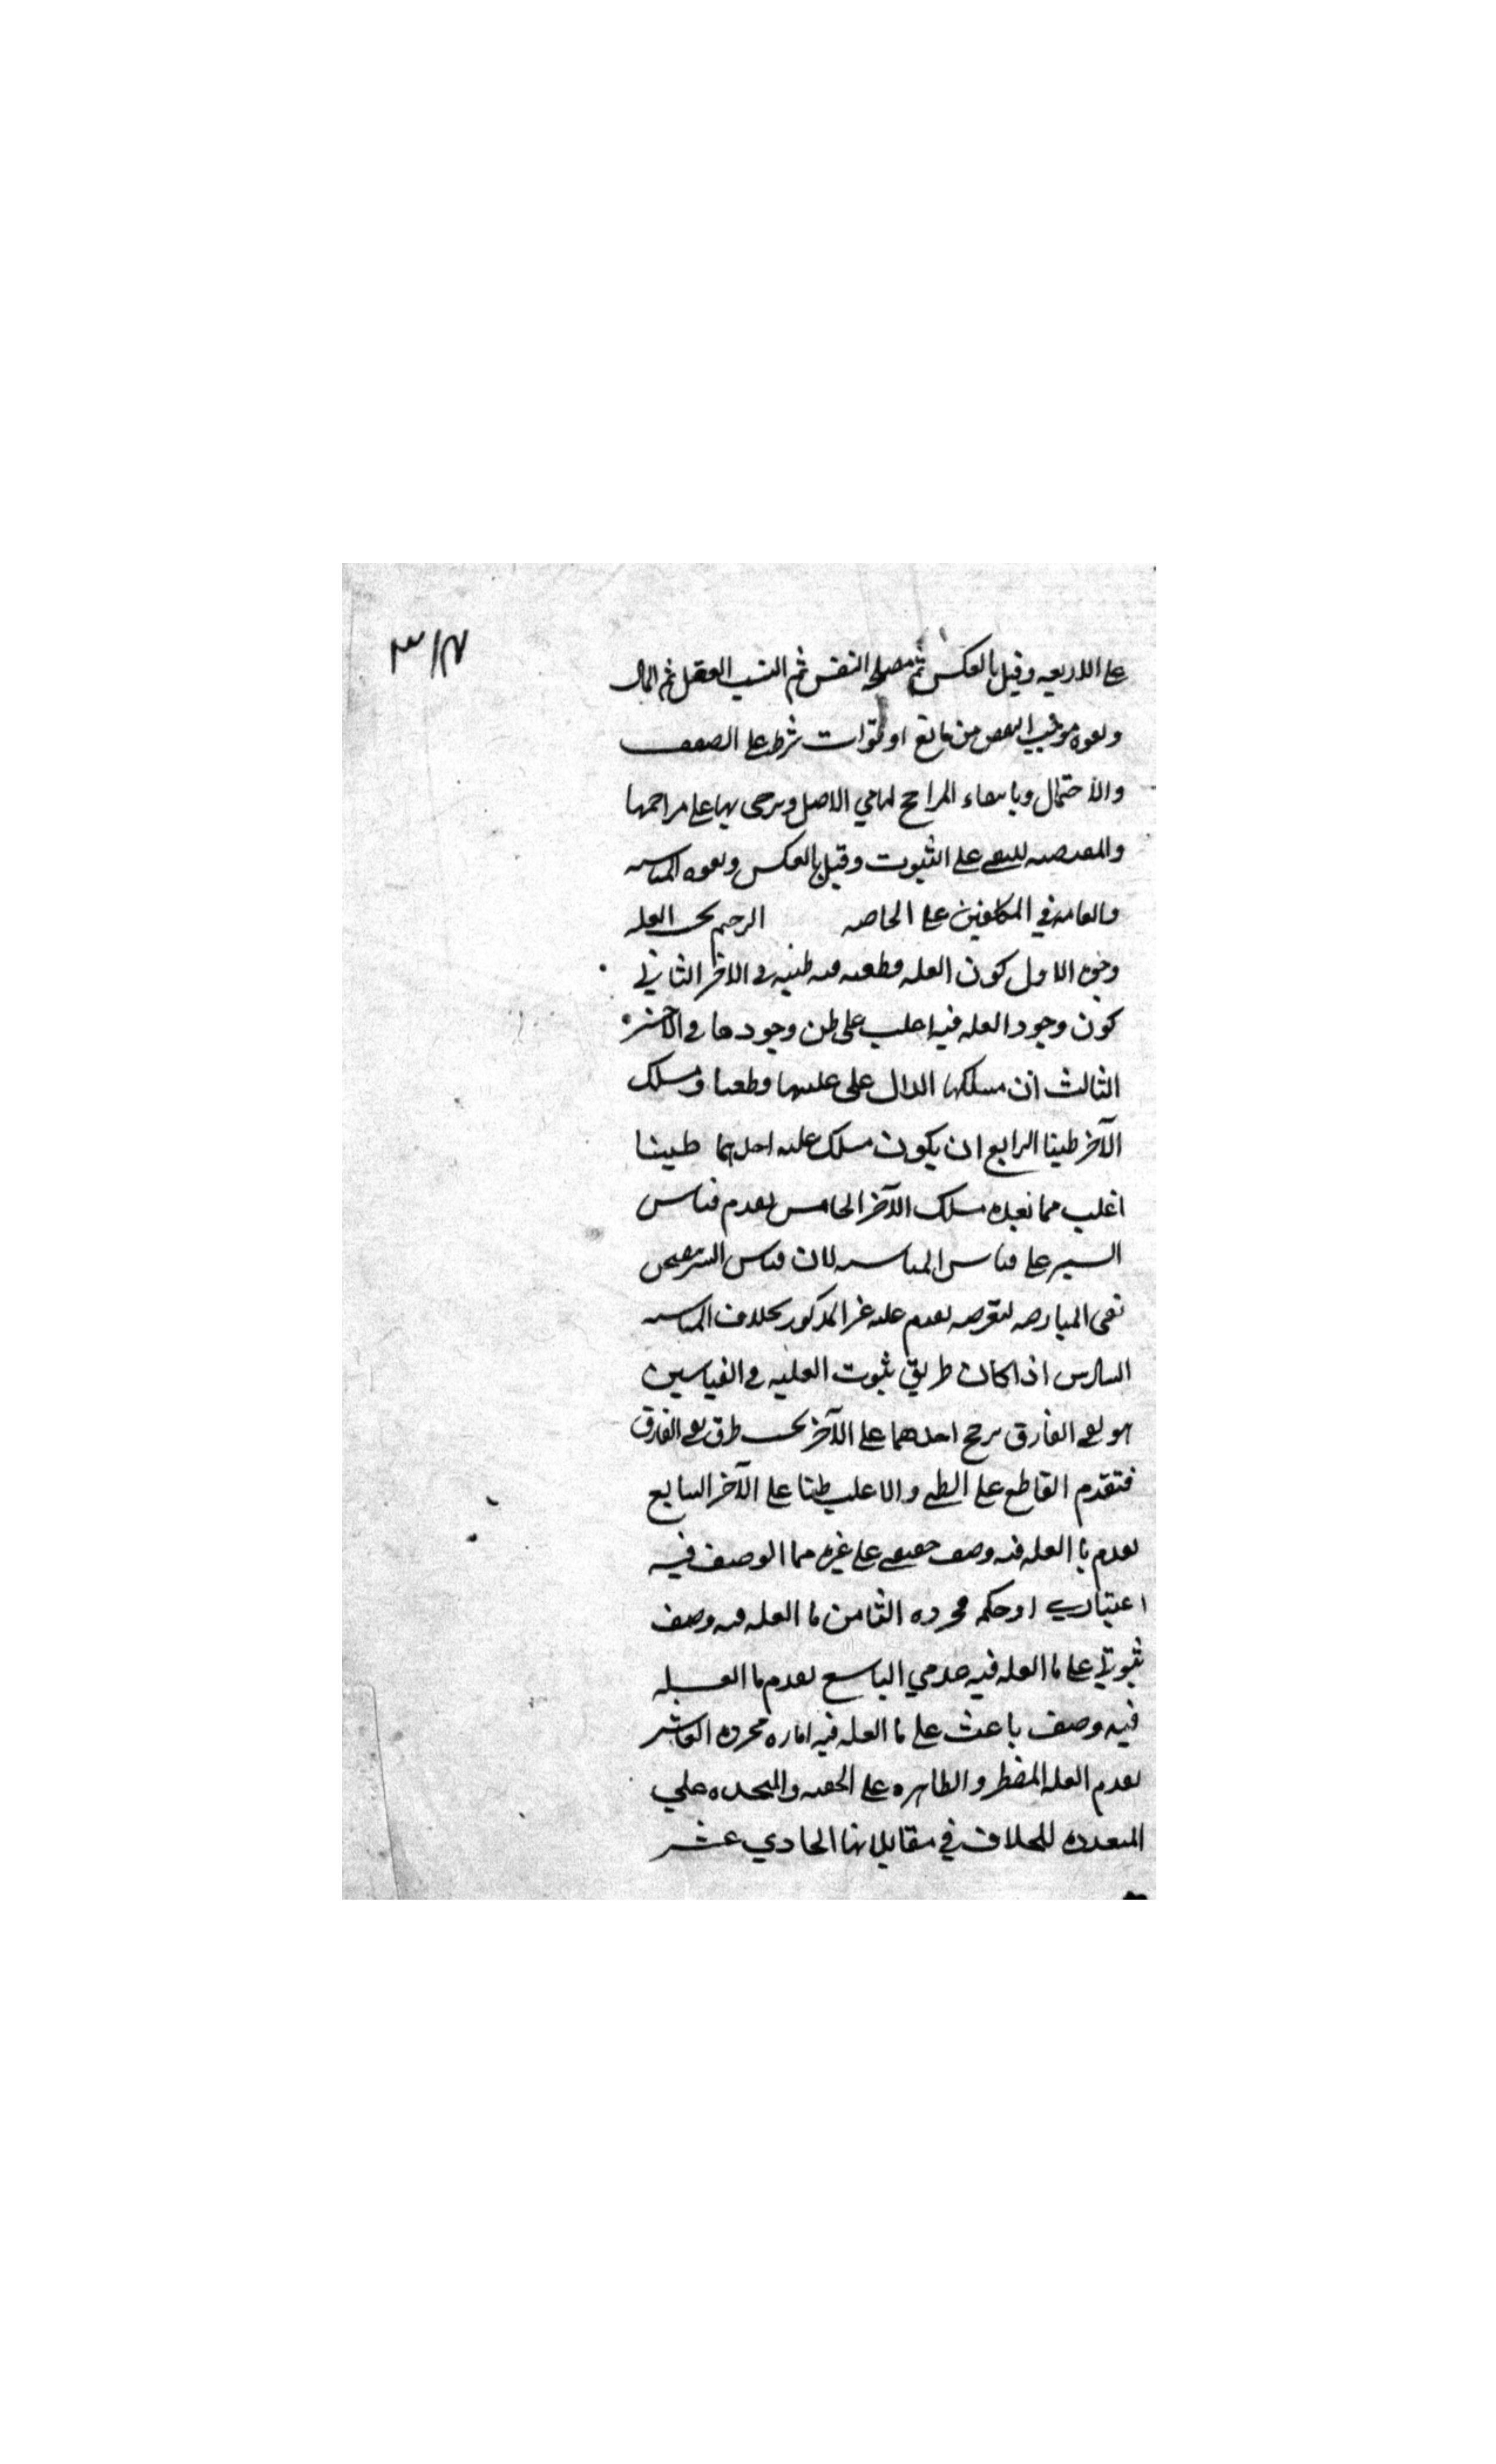 على الاربعه وقيل بالعكس ثم مصلحه النفس ثم النسب العقل ثم المال
وبقوه موجب النقض من مانع او فوات شرط على الضعف
والاحتمال وبانتفاء المزاحم لها في الاصل وبرجحانها على مزاحمها
والمقتضيه للنفي على الثبوت وقيل بالعكس وبقوه المناسبه
والعامه في المكلفين على الخاصه الترجيح بحسب العله
وجوه الاول كون العله قطعيه فيه ظنيه في الاخر الثاني
كون وجود العله فيه اغلب على ظن وجودها في الآخر
الثالث ان مسلكها الدال على عليتها قطعيا ومسلك
الآخر ظنيا الرابع ان يكون مسلك عليه احدهما ظنينا
اغلب مما يفيده مسلك الآخر الخامس يقدم قياس
السبر على قياس المناسبه لان قياس السبر يتضمن
نفى المعارض لتعرضه لعدم عليه غير المذكور بخلاف المناسبه
السادس اذا كان طريق ثبوت العليه في القياسين
هو نفي الفارق يرجح احدهما على الآخر بحسب طرق نفي الفارق
فتقدم القاطع على الظني والاغلب ظنا على الآخر السابع
يقدم ما العله فيه وصف حقيقي على غيره مما الوصف فيه
اعتباري او حكمه مجرده الثامن ما العله فيه وصف
ثبوتي على ما العله فيه عدمي التاسع يقدم ما العله
فيه وصف باعث على ما العله فيه اماره مجرده العاشر
يقدم العله المنضبطه والظاهره على الخفيه والمتحده على
المتعدده للخلاف في مقابلاتها الحادي عشر